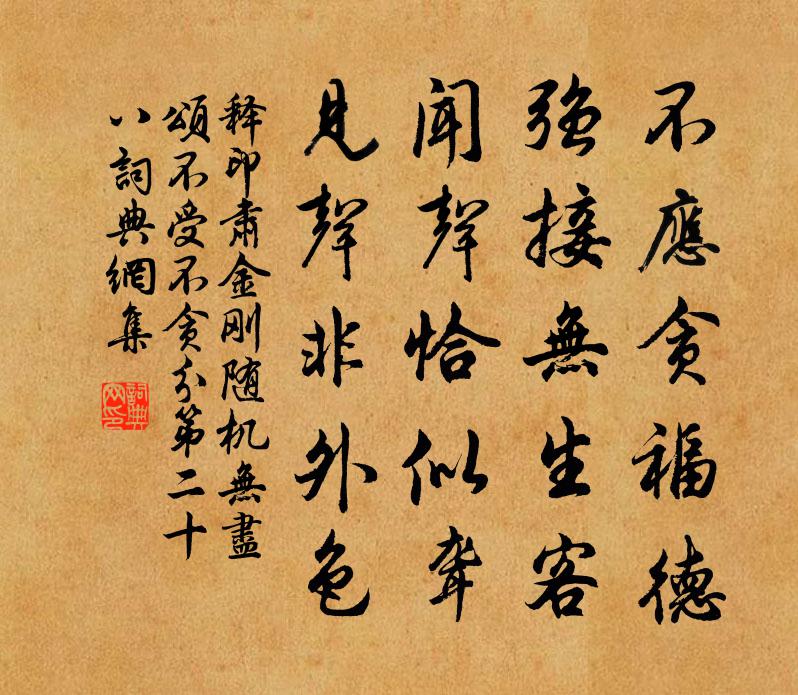 不應貪福德
强接無生客
聞聲恰似聾
見聲非外色
释印肃金刚随机無盡
頌不受不贪分第二十
八詞典網集
詞典網印